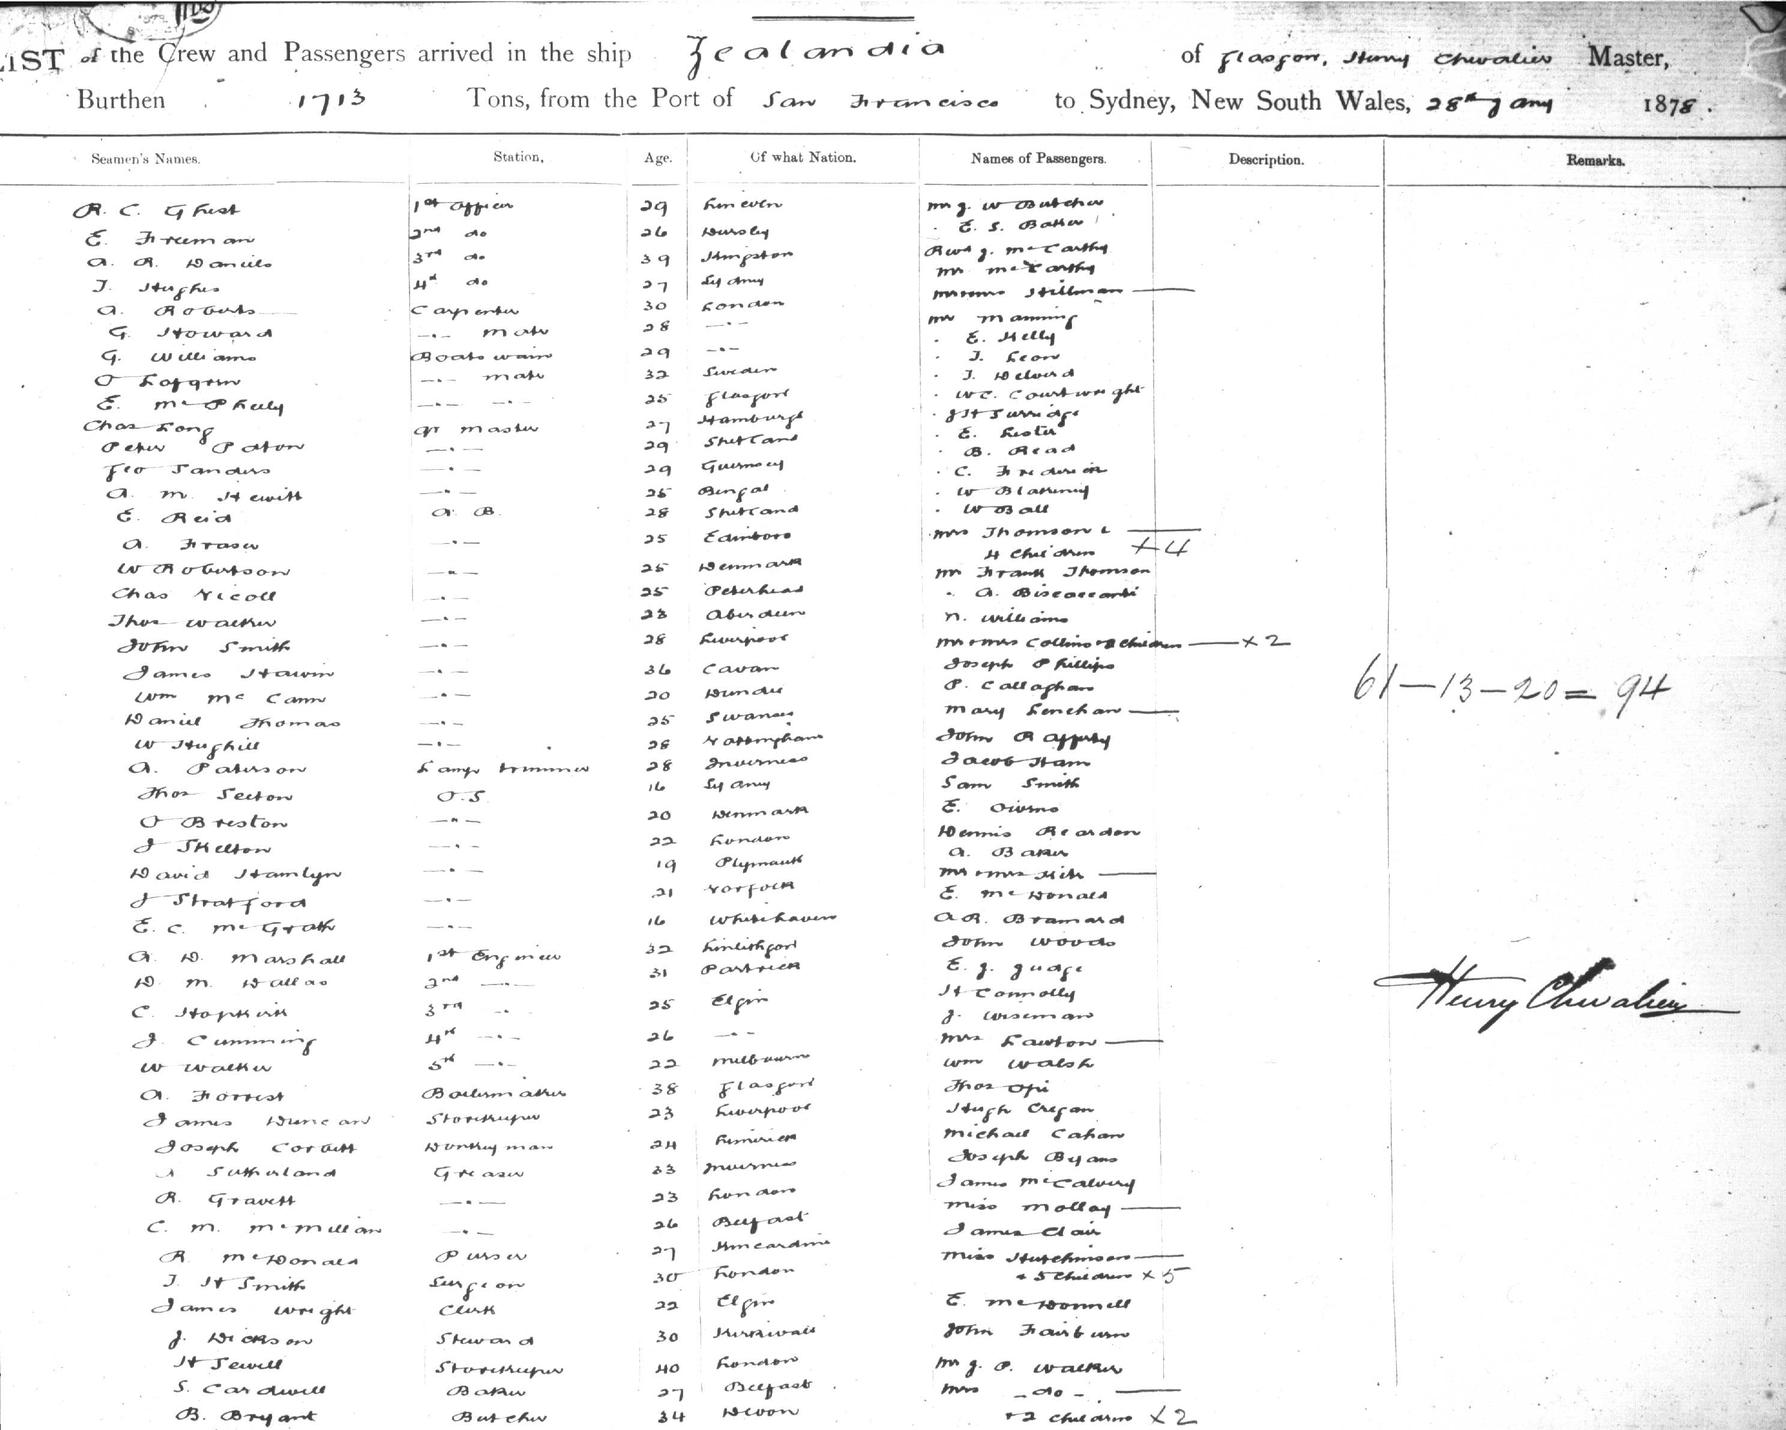 LIST of the Crew and Passengers arrived in the ship Zealandia of Glasgow, Henry Chevalier Master,
Burthen 1713 Tons, from the Port of San Francisco to Sydney, New South Wales, 28th Jany 1878.
Seamen's Names. Station, Age. Of what Nation. Names of Passengers. Description. Remarks.
R. C. Ghest 1st Officer 29 Mr J. W Butcher
E. Freeman 2nd do 26 Dursley " E. S. Baker
A. R. Daniels 3rd do 39 Kingston Revd J. McCarthy
T. Hughes 4th do 27 Sydney Mr McCarthy
A. Roberts Carpenter 30 London Mr & Mrs Hillman —
G. Howard —"— Mate 28 —"— Mr Manning
G. Williams Boatswain 29 —"— " E. Kelly
O Lofgren —"— Mate 32 Sweden " T. Leon
E. McPhelly —"— —"— 25 Glasgow " T. Delverd
Chas Long Qr Master 27 Hamburgh " W C. Courtwright
Peter Paton —"— 29 Shetland " J H Surridge
Geo Sanders —"— 29 Guernsey " E. Lester
A. M. Hewitt —"— 25 Bengal " B. Read
E. Reid A. B. 28 Shetland " C. Frederick
A. Fraser —"— 25 Edinboro " W Blakeney
W Robertson —"— 25 Denmark " W Ball
Chas Nicoll —"— 25 Peterhead Mrs Thomson &
Thos Walker —"— 23 Aberdeen 4 Children × 4
John Smith —"— 28 Liverpool Mr Frank Thomson
James Hawin —"— 36 Cavan " A. Biscaccanti
Wm McCann —"— 20 Dundee N. Williams
Daniel Thomas —"— 25 Swansea Mr & Mrs Collins & 2 Children — × 2
W Hughill —"— 28 Nottingham Joseph Phillips
A. Paterson Lamp trimmer 28 Inverness P. Callaghan
Thos Secton O.S. 16 Sydney Mary Lenehan —
O Breston —"— 20 Denmark John Rafferty
J Skelton —"— 22 London Jacob Ham
David Hamlyn —"— 19 Plymouth Sam Smith
J Stratford —"— 21 Norfolk E. Owens
E. C. McGrath —"— 16 Whitehaven Dennis Reardon
A. D. Marshall 1st Engineer 32 Linlithgow A. Baker
D. M. Dallas 2nd —"— 31 Partrick Mr & Mrs Kirk —
C. Hopkirk 3rd " 25 Elgin E. McDonald
J. Cumming 4th —"— 26 —"— A R. Bramard
W Walker 5th —"— 22 Melbourne John Woods
A. Forrest Boilermaker 38 Glasgow E. J. Judge
James Duncan Storekeeper 23 Liverpool H Connolly
Joseph Corbett Donkeyman 24 Limerick J. Wiseman
A Sutherland Greaser 33 Inverness Mrs Lawton —
R. Gravett —"— 23 London Wm Walsh
C. M. McMillan —"— 26 Belfast Thos Opie
R McDonald Purser 27 Kincardine Hugh Cregan
T. H Smith Surgeon 30 London Michael Cahan
James Wright Clerk 22 Elgin Joseph Byans
J. Dickson Steward 30 Kirkwall James McCalvery
H Sewell Storekeeper 40 London Miss Mollay —
S. Cardwell Baker 27 Belfast James Clair
B. Bryant Butcher 34 Devon Miss Hutchinson —
& 5 Children × 5
E. McDonnell
John Fairburn
Mr J. P. Walker
Mrs — do — —
+ 2 Children × 2
61 — 13 — 20 = 94
Henry Chevalier